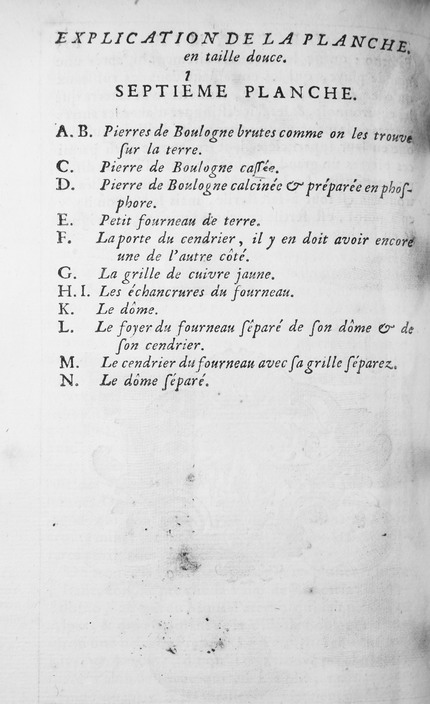 EXPLICATION DE LA PLANCHE.
en taille douce.
1
SEPTIEME PLANCHE.
A. B. Pierres de Boulogne brutes comme on les trouve
ſur la terre.
C. Pierre de Boulogne caſſée.
D. Pierre de Boulogne calcinée & préparée en phoſ-
phore.
E. Petit fourneau de terre.
F. La porte du cendrier, il y en doit avoir encore
une de l'autre côté.
G. La grille de cuivre jaune.
H. I. Les échancrures du fourneau.
K. Le dôme.
L. Le foyer du fourneau ſéparé de ſon dôme & de
ſon cendrier.
M. Le cendrier du fourneau avec ſa grille ſéparez.
N. Le dôme ſéparé.